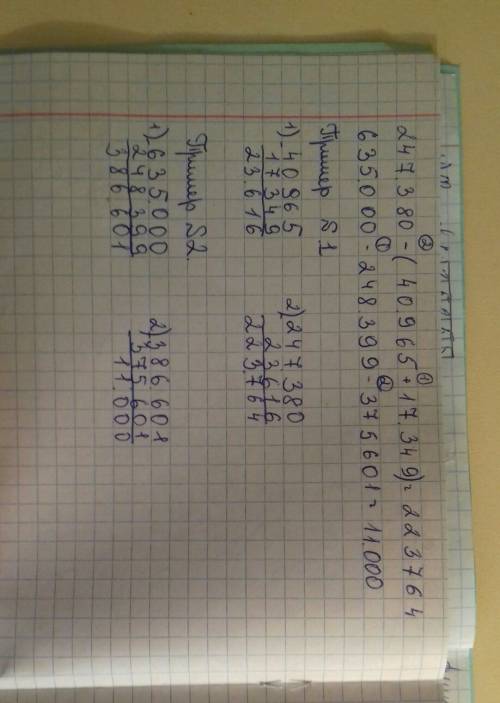 247.380 - (40.965 + 17.349) = 223764
② ①
635.000 - 248.399 - 375601 = 11.000
① ②
Пример №1
1) 40965
17349
23.616
2) 247.380
23616
223.764
Пример №2.
1) 635.000
248399
386601
2) 386.601
375601
11.000